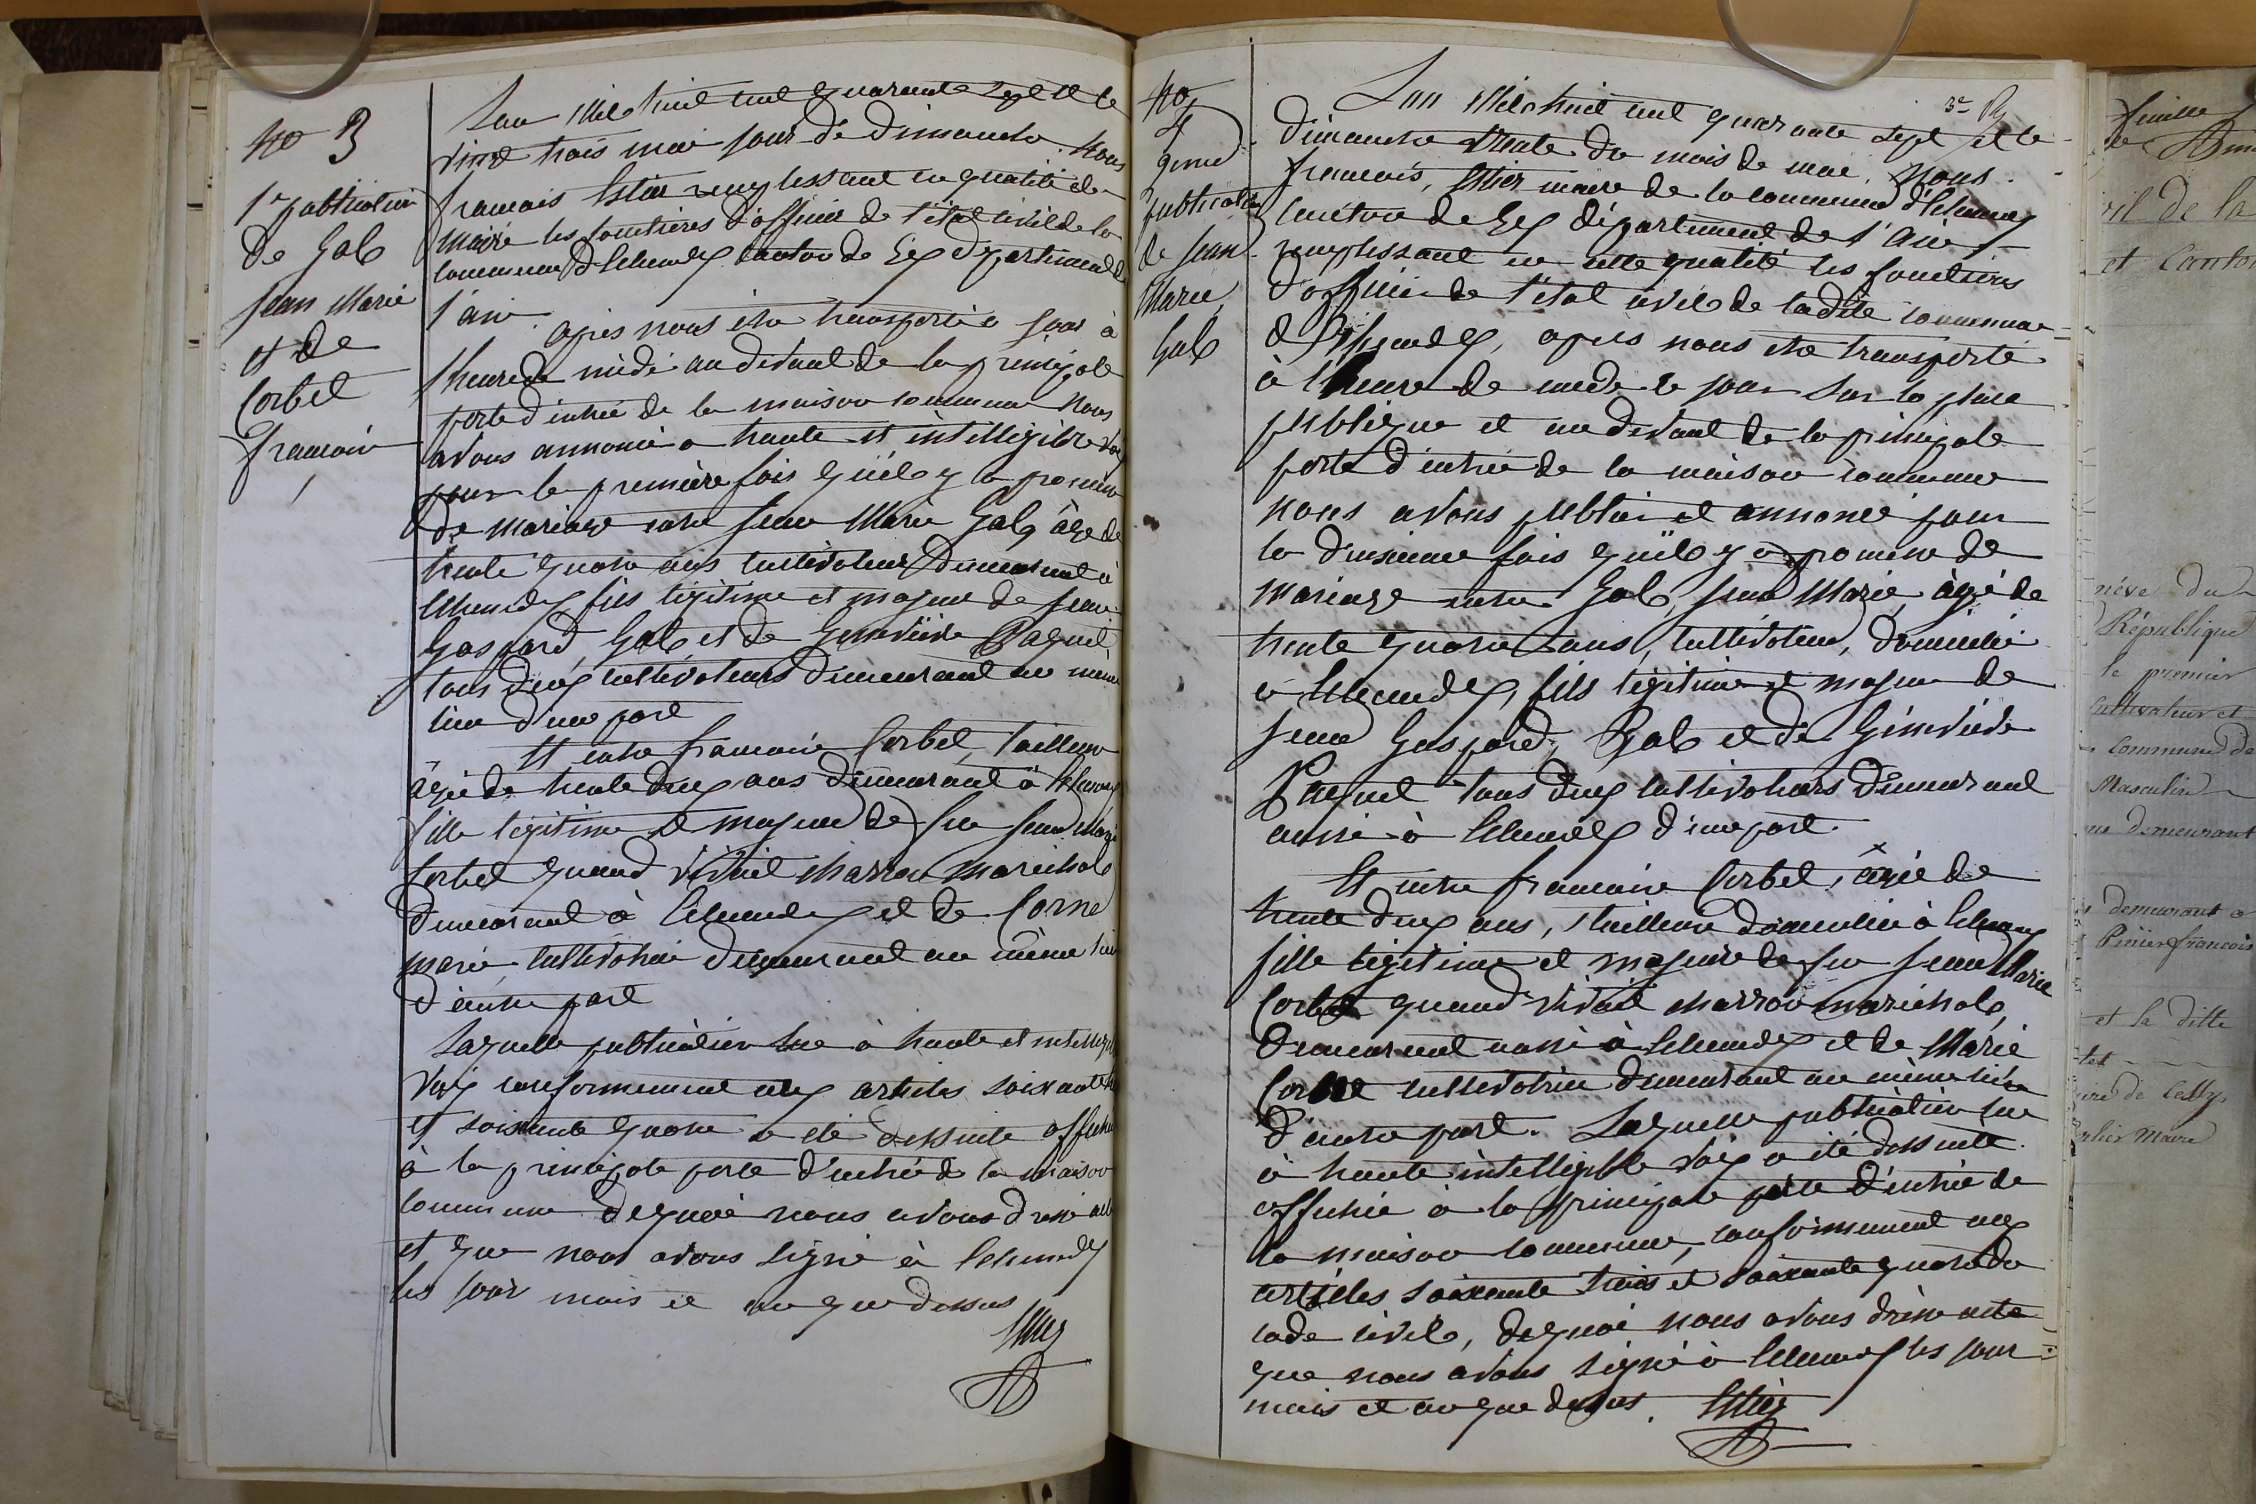 No 3
1re publication
de Gal
Jean Marie
et de
Corbet
françoise
L'an Mil huit cent quarante sept et le
vingt trois mai jour de dimanche. Nous
françois remplissant en qualité de
maire les fonctions d'officier de l'état civil de la
commune d'Echenevex canton de Gex département de
l'ain. après nous être transporté ce jour à
l'heure de midi au devant de la principale
porte d'entrée de la maison commune nous
avons annoncé a haute et intelligible voix
pour la première fois qu'il y a promesse
de mariage entre Jean Marie Gal âgé de
trente quatre ans cultivateur demeurant à
Echenevex fils légitime et majeur de Jean
Gaspard Gal et de Geneviève Paquet
tous deux cultivateurs demeurant au même
lieu d'une part
Et entre françoise Corbet, tailleuse
âgée de trente deux ans demeurant à Echenevex
fille légitime et majeure de feu Jean Marie
Corbet quand vivait charron maréchal
demeurant à Echenevex et de Corne
marie, cultivatrice demeurant au même lieu
d'autre part
Laquelle publication lue à haute et intelligible
voix conformément aux articles soixante trois
et soixante quatre a été de suite affichée
à la principale porte d'entrée de la maison
commune de quoi nous avons dressé acte
et que nous avons signé à Echenevex
les jour mois et an que dessus
No 4
publication
de Jean
Marie
Gal
L'an Mil huit cent quarante sept et le
dimanche trente du mois de mai, Nous
françois, maire de la commune d'Echenevex
canton de Gex département de l'Ain
remplissant en cette qualité les fonctions
d'officier de l'état civil de ladite commune
d'Echenevex, après nous être transporté
à l'heure de midi ce jour sur la place
publique et au devant de la principale
porte d'entrée de la maison commune
nous avons publié et annoncé pour
la deuxieme fois qu'il y a promesse de
mariage entre Gal, Jean Marie, âgé de
trente quatre ans, cultivateur, domicilié
à Echenevex, fils légitime et majeur de
Jean Gaspard, Gal et de Géneviève
Paquet tous deux cultivateurs demeurant
aussi à Echenevex d'une part.
Et entre françoise Corbet, âgée de
trente deux ans, tailleuse domiciliée à Echenevex
fille légitime et majeure de feu Jean Marie
Corbet quand vivait charron maréchal,
demeurant aussi à Echenevex et de Marie
Corne cultivatrice demeurant au même lieu
d'autre part. Laquelle publication lue
à haute intelligible voix a été de suite
affichée à la principale porte d'entrée de
la maison commune, conformément aux
articles soixante trois et soixante quatre du
code civil, de quoi nous avons dressé acte
que nous avons signé à Echenevex les jour
mois et an que dessus.
famille
vil de la
et Canton
nève du
République
le premier
Cultivateur et
commune de
Masculin
demeurant
demeurant a
françois
et la ditte
Maire